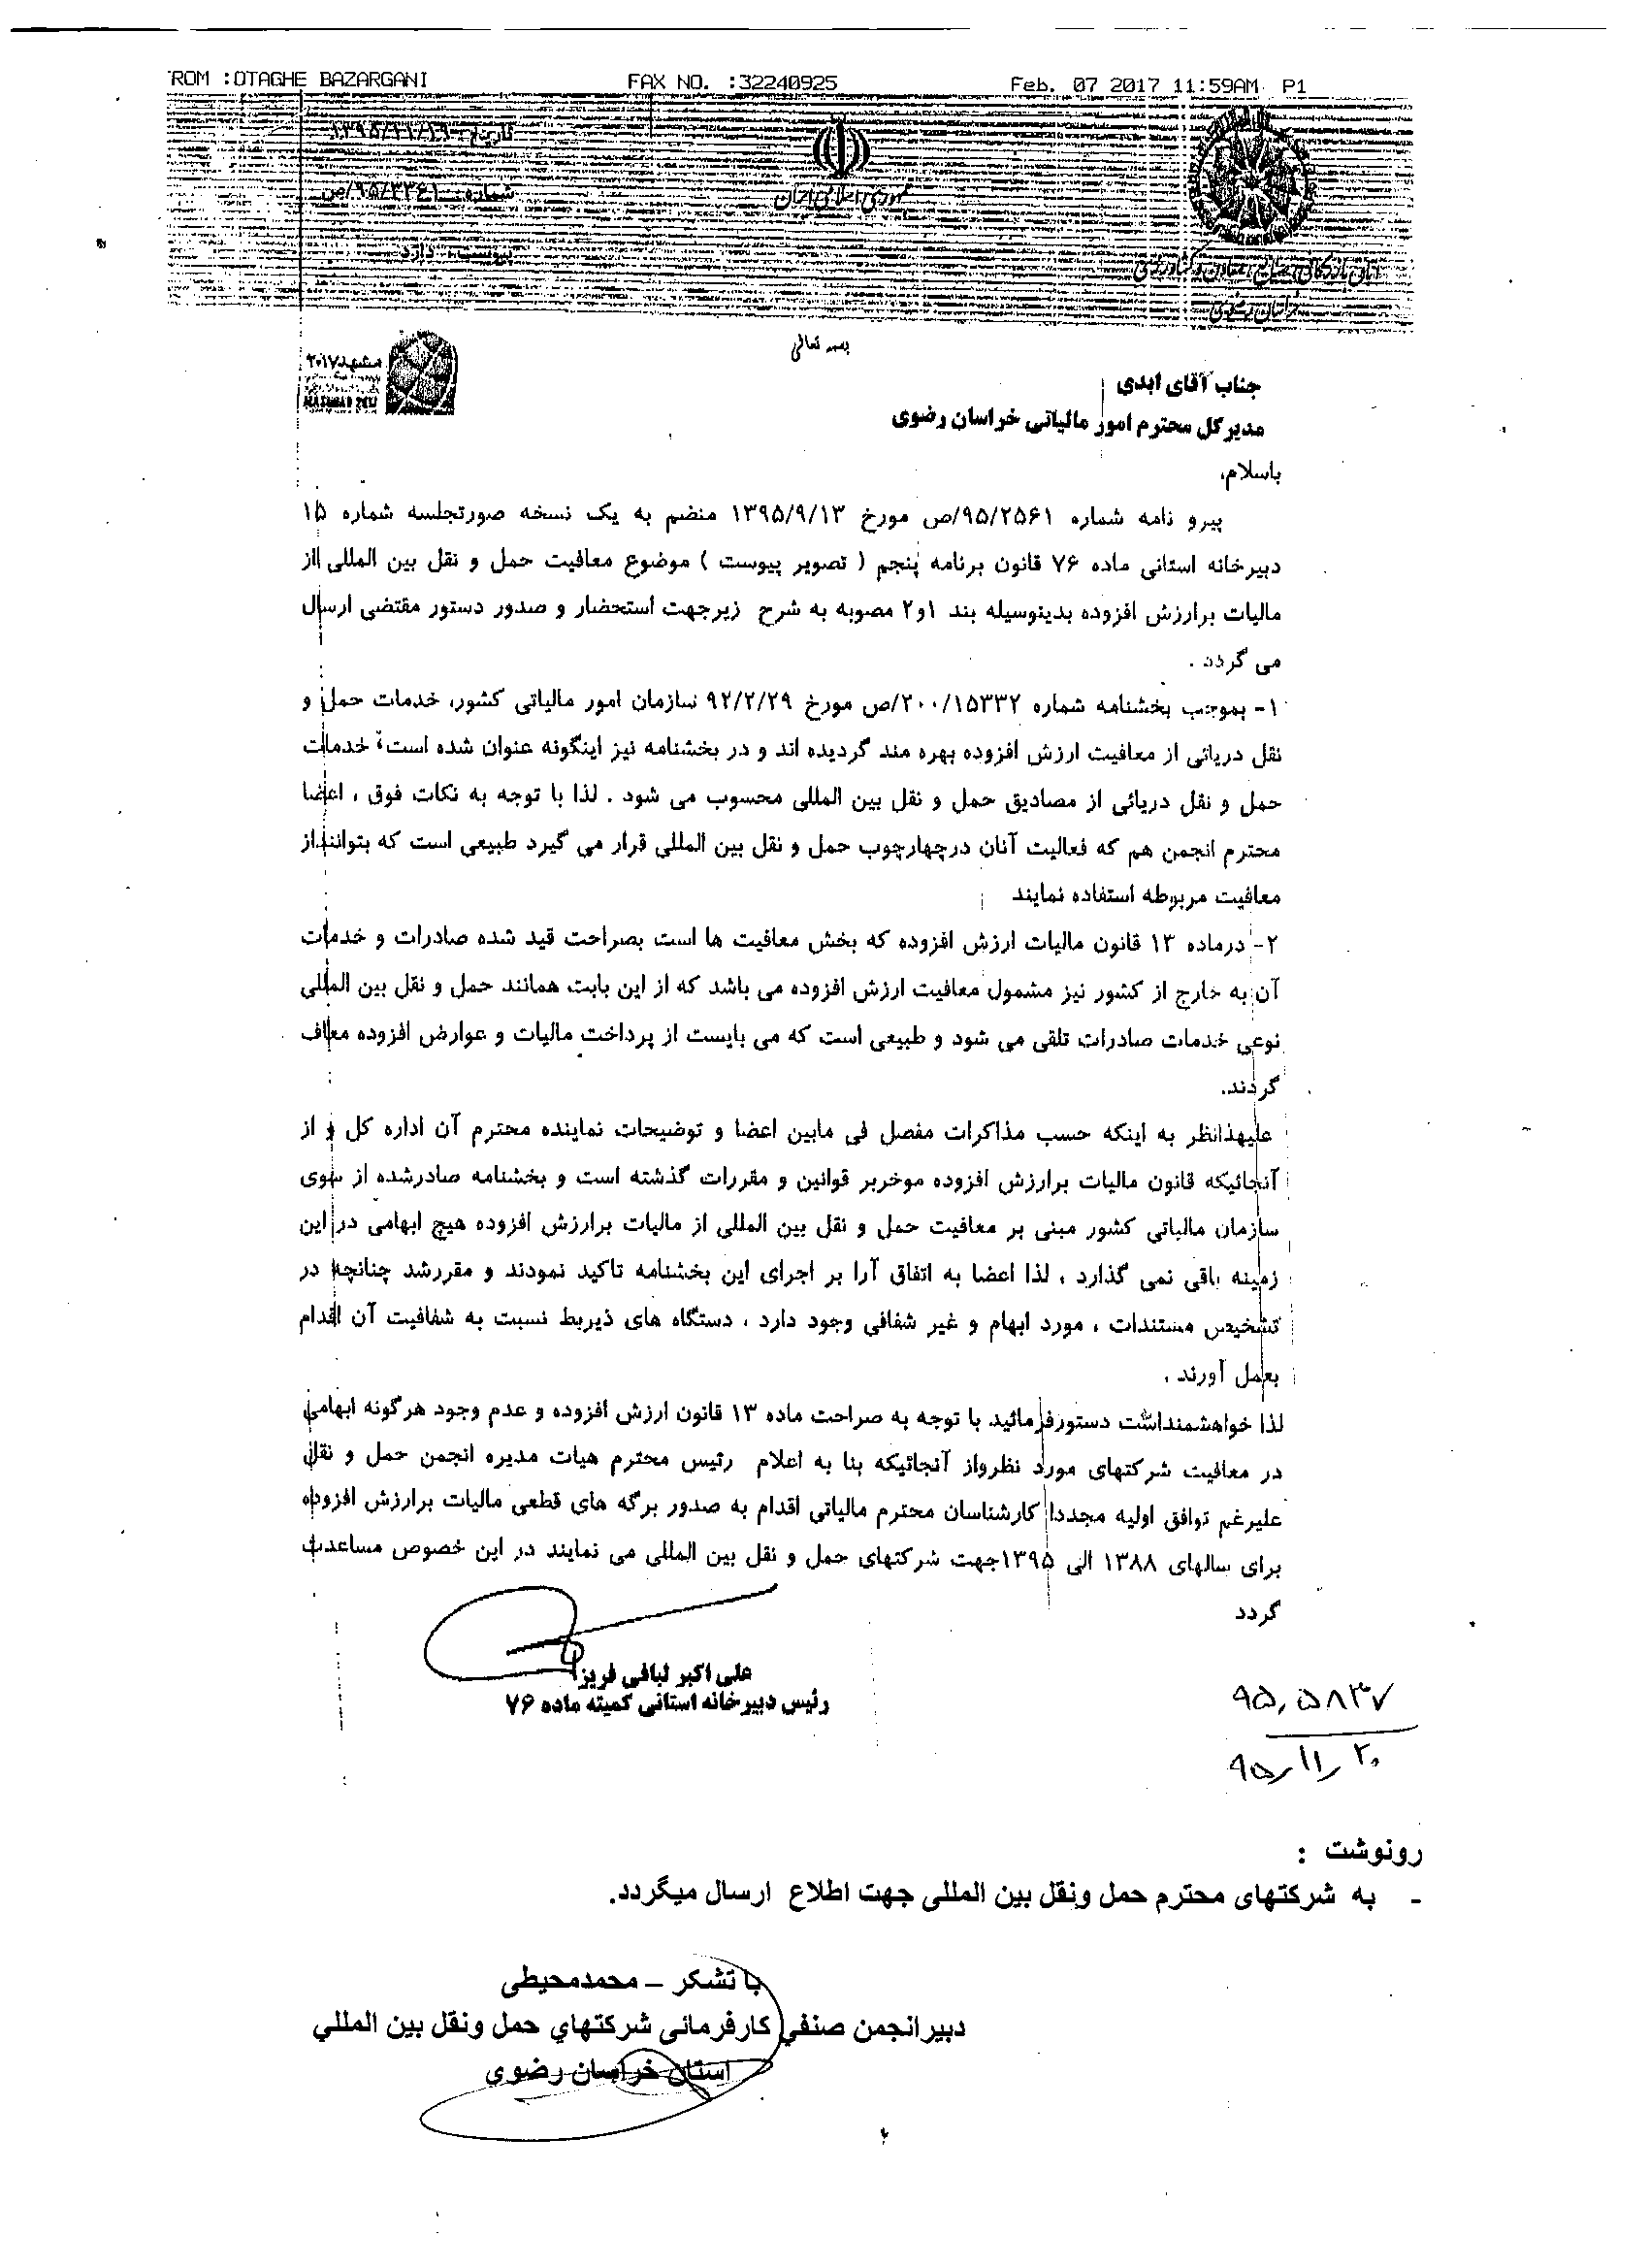 ROM :OTAGHE BAZARGANI FAX NO. :32240925 Feb. 07 2017 11:59AM P1
تاریخ: ۱۳۹۵/۱۱/۱۹
شماره: ۹۵/۳۳۶۱/ص
پیوست: دارد
جمهوری اسلامی ایران
اتاق بازرگانی، صنایع، معادن و کشاورزی
خراسان رضوی
بسمه تعالی
مشهد ۲۰۱۷
MASHHAD 2017
جناب آقای ابدی
مدیرکل محترم امور مالیاتی خراسان رضوی
باسلام،
پیرو نامه شماره ۹۵/۲۵۶۱/ص مورخ ۱۳۹۵/۹/۱۳ منضم به یک نسخه صورتجلسه شماره ۱۵
دبیرخانه استانی ماده ۷۶ قانون برنامه پنجم ( تصویر پیوست ) موضوع معافیت حمل و نقل بین المللی از
مالیات برارزش افزوده بدینوسیله بند ۱و۲ مصوبه به شرح زیرجهت استحضار و صدور دستور مقتضی ارسال
می گردد .
۱- بموجب بخشنامه شماره ۲۰۰/۱۵۳۳۲/ص مورخ ۹۲/۲/۲۹ سازمان امور مالیاتی کشور، خدمات حمل و
نقل دریائی از معافیت ارزش افزوده بهره مند گردیده اند و در بخشنامه نیز اینگونه عنوان شده است؛ خدمات
حمل و نقل دریائی از مصادیق حمل و نقل بین المللی محسوب می شود . لذا با توجه به نکات فوق ، اعضا
محترم انجمن هم که فعالیت آنان درچهارچوب حمل و نقل بین المللی قرار می گیرد طبیعی است که بتوانند از
معافیت مربوطه استفاده نمایند
۲- درماده ۱۳ قانون مالیات ارزش افزوده که بخش معافیت ها است بصراحت قید شده صادرات و خدمات
آن به خارج از کشور نیز مشمول معافیت ارزش افزوده می باشد که از این بابت همانند حمل و نقل بین المللی
نوعی خدمات صادرات تلقی می شود و طبیعی است که می بایست از پرداخت مالیات و عوارض افزوده معاف
گردند.
علیهذانظر به اینکه حسب مذاکرات مفصل فی مابین اعضا و توضیحات نماینده محترم آن اداره کل و از
آنجائیکه قانون مالیات برارزش افزوده موخربر قوانین و مقررات گذشته است و بخشنامه صادرشده از سوی
سازمان مالیاتی کشور مبنی بر معافیت حمل و نقل بین المللی از مالیات برارزش افزوده هیچ ابهامی در این
زمینه باقی نمی گذارد ، لذا اعضا به اتفاق آرا بر اجرای این بخشنامه تاکید نمودند و مقررشد چنانچه در
تشخیص مستندات ، مورد ابهام و غیر شفافی وجود دارد ، دستگاه های ذیربط نسبت به شفافیت آن اقدام
بعمل آورند .
لذا خواهشمنداست دستورفرمائید با توجه به صراحت ماده ۱۳ قانون ارزش افزوده و عدم وجود هرگونه ابهامی
در معافیت شرکتهای مورد نظرواز آنجائیکه بنا به اعلام رئیس محترم هیات مدیره انجمن حمل و نقل
علیرغم توافق اولیه مجددا کارشناسان محترم مالیاتی اقدام به صدور برگه های قطعی مالیات برارزش افزوده
برای سالهای ۱۳۸۸ الی ۱۳۹۵جهت شرکتهای حمل و نقل بین المللی می نمایند در این خصوص مساعدت
گردد
علی اکبر لبافی فریزی
رئیس دبیرخانه استانی کمیته ماده ۷۶
۹۵,۵۸۳۷
۹۵/۱۱/۲۰
رونوشت :
- به شرکتهای محترم حمل ونقل بین المللی جهت اطلاع ارسال میگردد.
با تشکر – محمدمحیطی
دبیرانجمن صنفي کارفرمائی شرکتهاي حمل ونقل بین المللي
استان خراسان رضوی